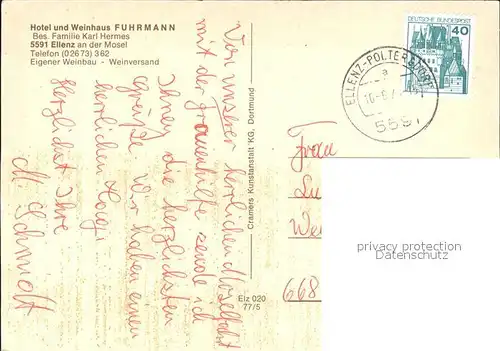 Hotel und Weinhaus FUHRMANN
Bes. Familie Karl Hermes
5591 Ellenz an der Mosel
Telefon (02673) 362
Eigener Weinbau - Weinversand
Von unserer herrlichen Moselfahrt
mit der Frauenhilfe sende ich
Ihnen die herzlichsten
Grüße. Wir haben einen
herrlichen Tag.
Herzlichst Ihre
M. Schmidt
Cramers Kunstanstalt KG, Dortmund
Elz 020
77/5
DEUTSCHE BUNDESPOST
40
ELLENZ-POLTERSDORF
a
5591
Frau
668
privacy protection
Datenschutz